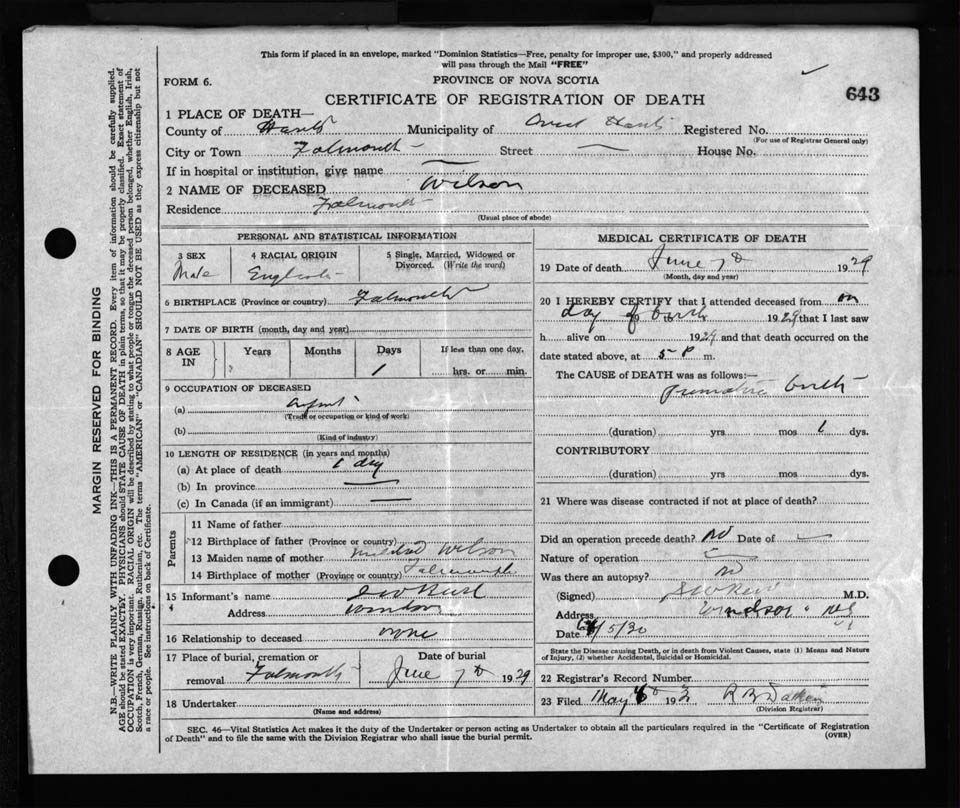 This form if placed in an envelope, marked "Dominion Statistics—Free, penalty for improper use, $300," and properly addressed
will pass through the Mail "FREE"
FORM 6.
PROVINCE OF NOVA SCOTIA
643
CERTIFICATE OF REGISTRATION OF DEATH
1 PLACE OF DEATH—
County of Hants Municipality of West Hants Registered No.
(For use of Registrar General only)
City or Town Falmouth Street — House No.
If in hospital or institution, give name —
2 NAME OF DECEASED Wilson
Residence Falmouth
(Usual place of abode)
PERSONAL AND STATISTICAL INFORMATION
3 SEX 4 RACIAL ORIGIN 5 Single, Married, Widowed or
Divorced. (Write the word)
Male English
6 BIRTHPLACE (Province or country) Falmouth
7 DATE OF BIRTH (month, day and year)
8 AGE IN Years Months Days If less than one day,
1 hrs. or min.
9 OCCUPATION OF DECEASED
(a) Infant
(Trade or occupation or kind of work)
(b)
(Kind of industry)
10 LENGTH OF RESIDENCE (in years and months)
(a) At place of death 1 day
(b) In province —
(c) In Canada (if an immigrant) —
Parents
11 Name of father
12 Birthplace of father (Province or country)
13 Maiden name of mother Mildred Wilson
14 Birthplace of mother (Province or country) Falmouth
15 Informant's name
Address Windsor
16 Relationship to deceased none
17 Place of burial, cremation or Date of burial
removal Falmouth June 7th 1929
18 Undertaker
(Name and address)
MEDICAL CERTIFICATE OF DEATH
19 Date of death June 7th 1929
(Month, day and year)
20 I HEREBY CERTIFY that I attended deceased from on
day of birth 1929 that I last saw
h alive on 1929 and that death occurred on the
date stated above, at 5 P m.
The CAUSE of DEATH was as follows:—
premature birth
(duration) yrs mos 1 dys.
CONTRIBUTORY
(duration) yrs mos dys.
21 Where was disease contracted if not at place of death?
Did an operation precede death? No Date of —
Nature of operation —
Was there an autopsy? no
(Signed) M.D.
Address Windsor NS
Date 6/5/30
State the Disease causing Death, or in death from Violent Causes, state (1) Means and Nature
of Injury, (2) whether Accidental, Suicidal or Homicidal.
22 Registrar's Record Number
23 Filed May 193
(Division Registrar)
SEC. 46—Vital Statistics Act makes it the duty of the Undertaker or person acting as Undertaker to obtain all the particulars required in the "Certificate of Registration
of Death" and to file the same with the Division Registrar who shall issue the burial permit.
(OVER)
MARGIN RESERVED FOR BINDING
N.B.—WRITE PLAINLY, WITH UNFADING INK—THIS IS A PERMANENT RECORD. Every item of information should be carefully supplied.
AGE should be stated EXACTLY. PHYSICIANS should STATE CAUSE OF DEATH in plain terms, so that it may be properly classified. Exact statement of
OCCUPATION is very important. RACIAL ORIGIN will be described by stating to what people or tongue the deceased person belonged, whether English, Irish,
Scotch, French, German, Russian, Ruthenian, etc. The terms "AMERICAN" or "CANADIAN" SHOULD NOT BE USED as they express citizenship but not
a race or people. See instructions on back of Certificate.